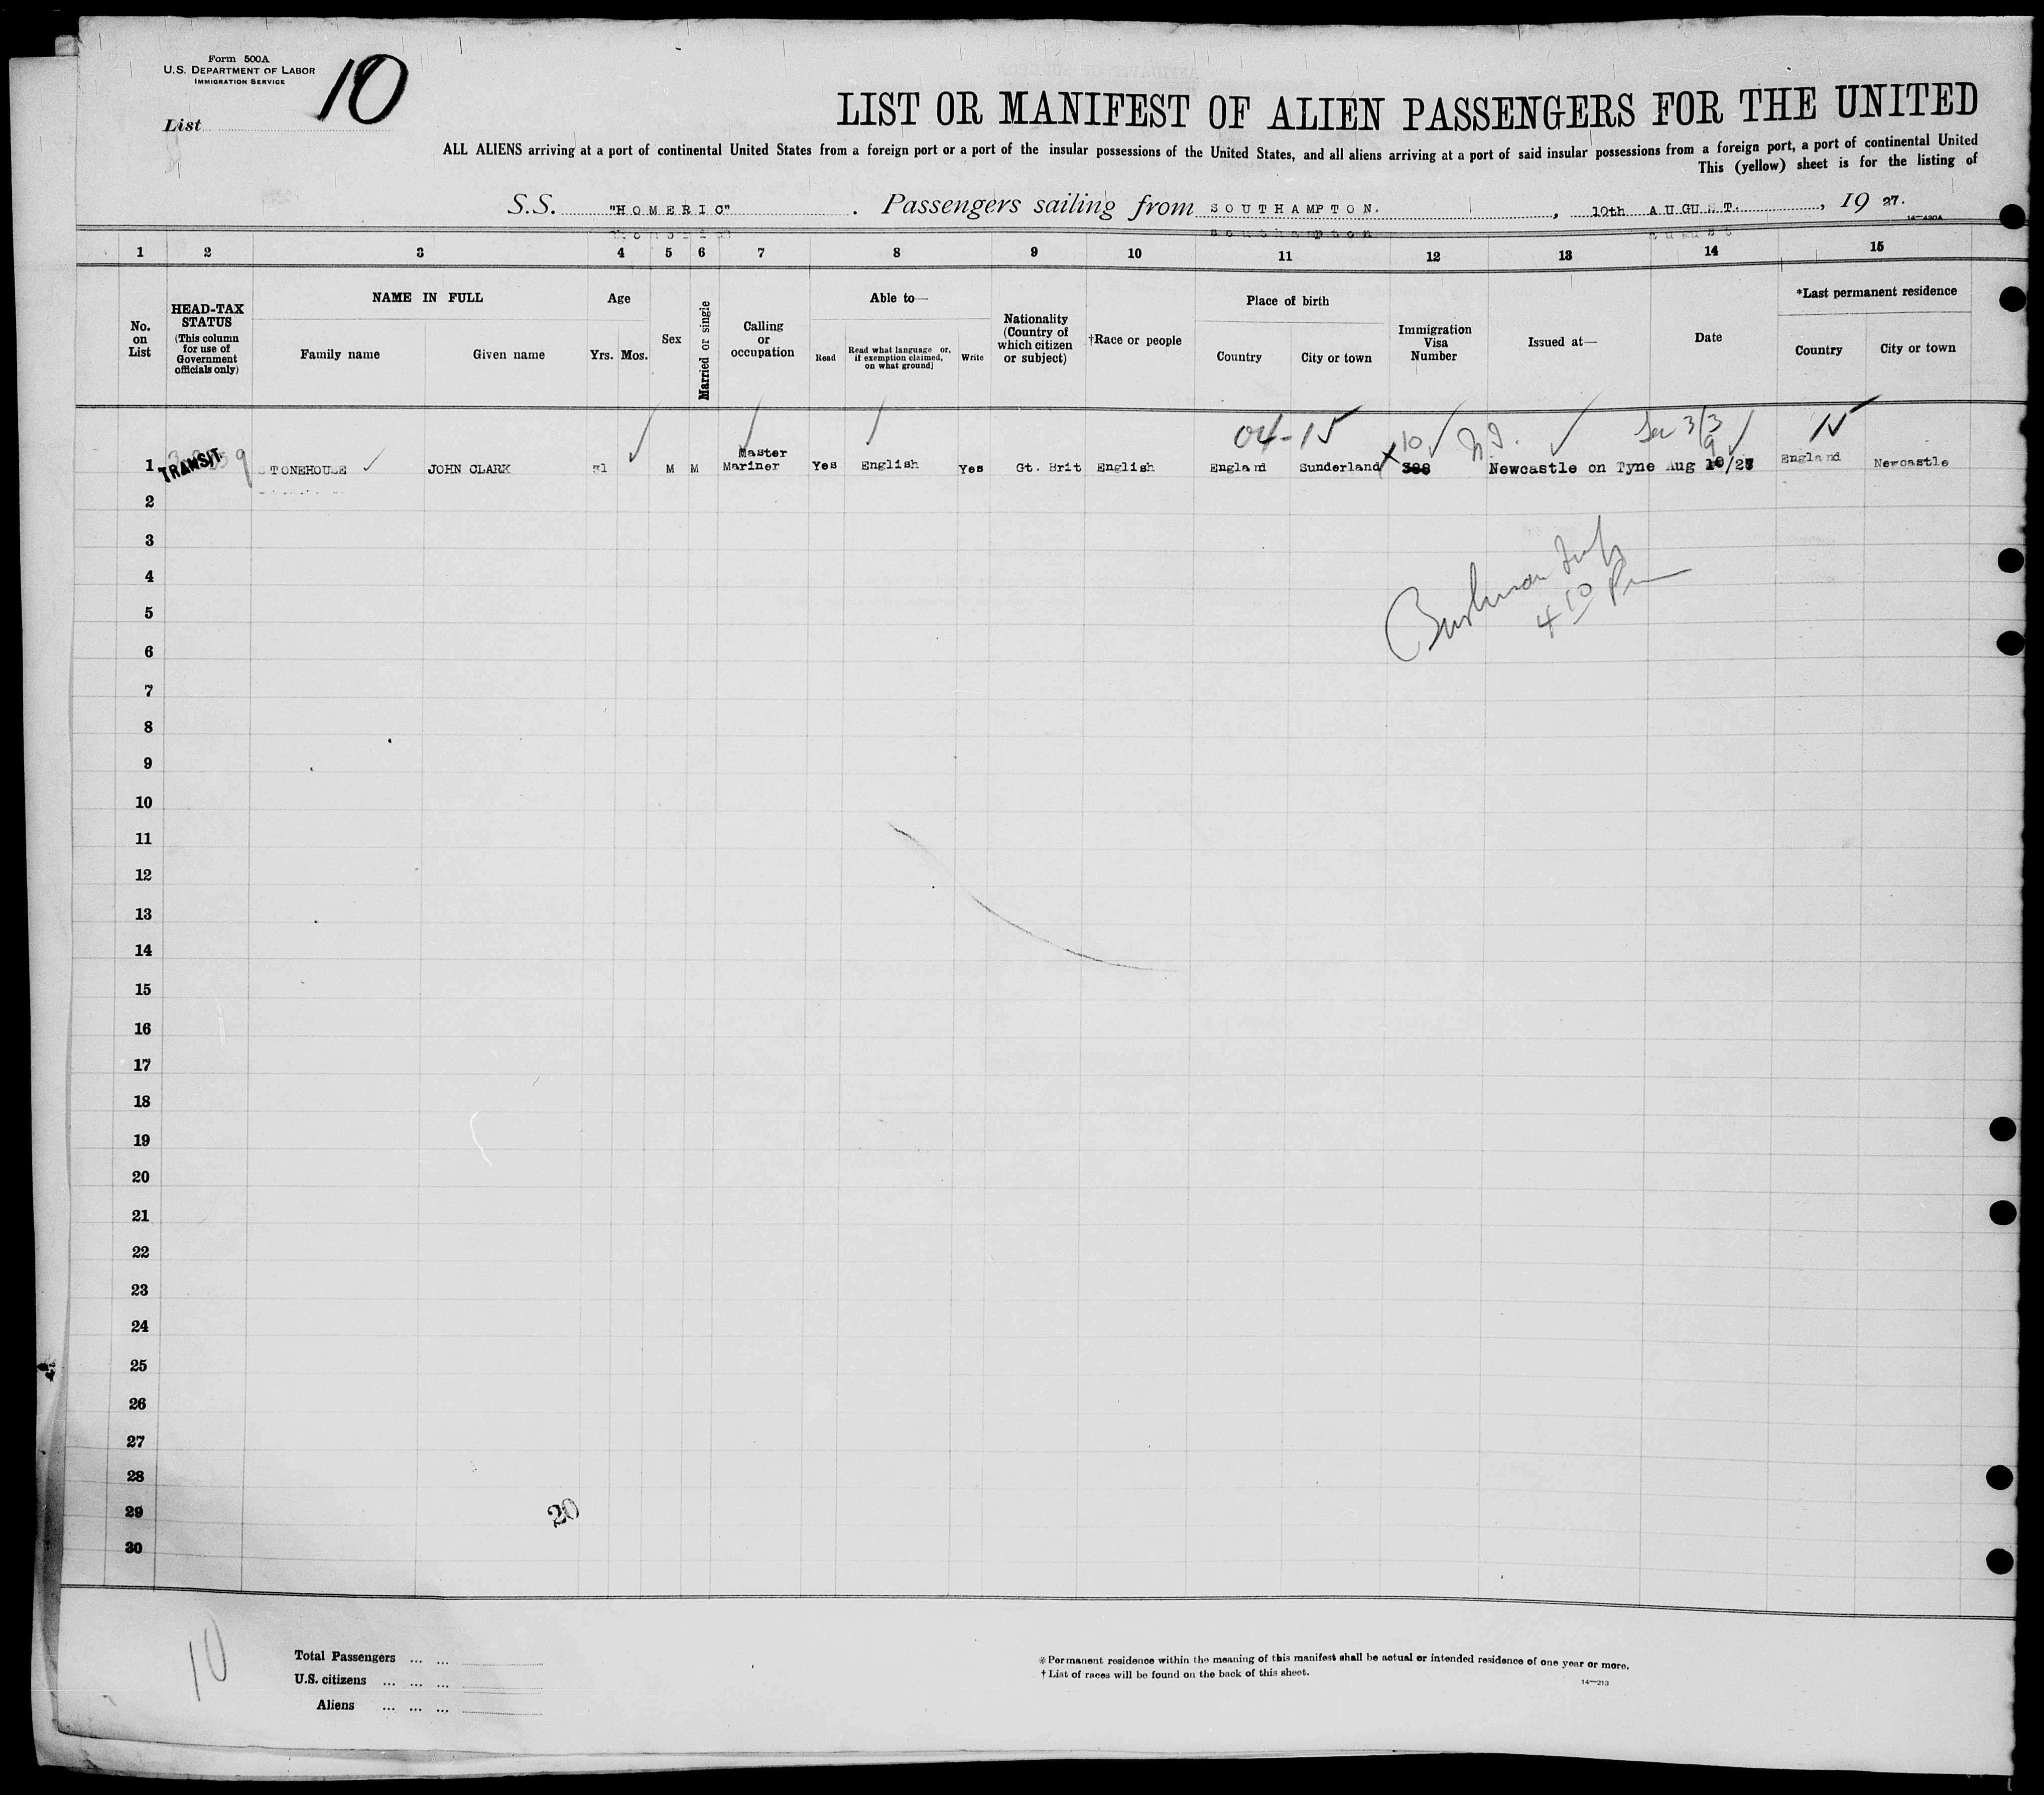 Form 500A
U.S. DEPARTMENT OF LABOR
IMMIGRATION SERVICE
List 10
LIST OR MANIFEST OF ALIEN PASSENGERS FOR THE UNITED
ALL ALIENS arriving at a port of continental United States from a foreign port or a port of the insular possessions of the United States, and all aliens arriving at a port of said insular possessions from a foreign port, a port of continental United
This (yellow) sheet is for the listing of
S.S. "HOMERIC". Passengers sailing from SOUTHAMPTON, 10th AUGUST, 1927.
14-430A
1 2 3 4 5 6 7 8 9 10 11 12 13 14 15
No. on List
HEAD-TAX STATUS
(This column for use of Government officials only)
NAME IN FULL
Family name
Given name
Age
Yrs. Mos.
Sex
Married or single
Calling or occupation
Able to—
Read
Read what language or, if exemption claimed, on what ground]
Write
Nationality (Country of which citizen or subject)
†Race or people
Place of birth
Country
City or town
Immigration Visa Number
Issued at—
Date
*Last permanent residence
Country
City or town
04-15
10
Sec 3/3
9
Master
1 TRANSIT TONEHOUSE JOHN CLARK 31 M M Mariner Yes English Yes Gt. Brit English England Sunderland 388 Newcastle on Tyne Aug 10/27 England Newcastle
2
3
4
5
6
Bushman
4 10 Pm
7
8
9
10
11
12
13
14
15
16
17
18
19
20
21
22
23
24
25
26
27
28
29
20
30
10
Total Passengers ... ...
U.S. citizens ... ... ...
Aliens ... ... ...
* Permanent residence within the meaning of this manifest shall be actual or intended residence of one year or more.
† List of races will be found on the back of this sheet.
14-213